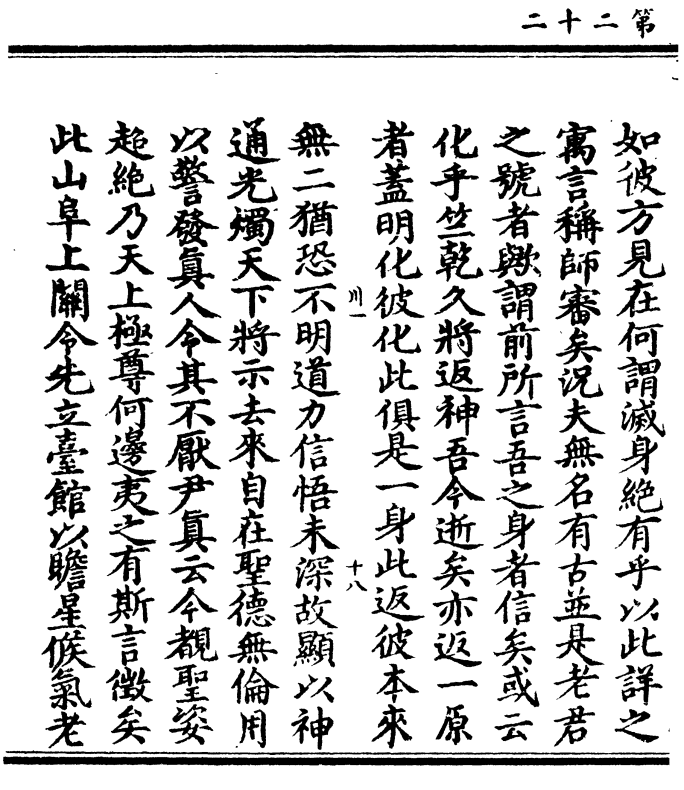 第二十二
如彼方見在何謂滅身絕有乎以此詳之
寓言稱師審矣況夫無名有古並是老君
之號者歟謂前所言吾之身者信矣或云
化乎竺乾久將返神吾今逝矣亦返一原
者蓋明化彼化此俱是一身此返彼本來
川一 十八
無二猶恐不明道力信悟未深故顯以神
通光燭天下將示去來自在聖德無倫用
以警發真人令其不厭尹真云今覩聖姿
超絕乃天上極尊何邊夷之有斯言徵矣
此山阜上關令先立臺館以瞻星候氣老